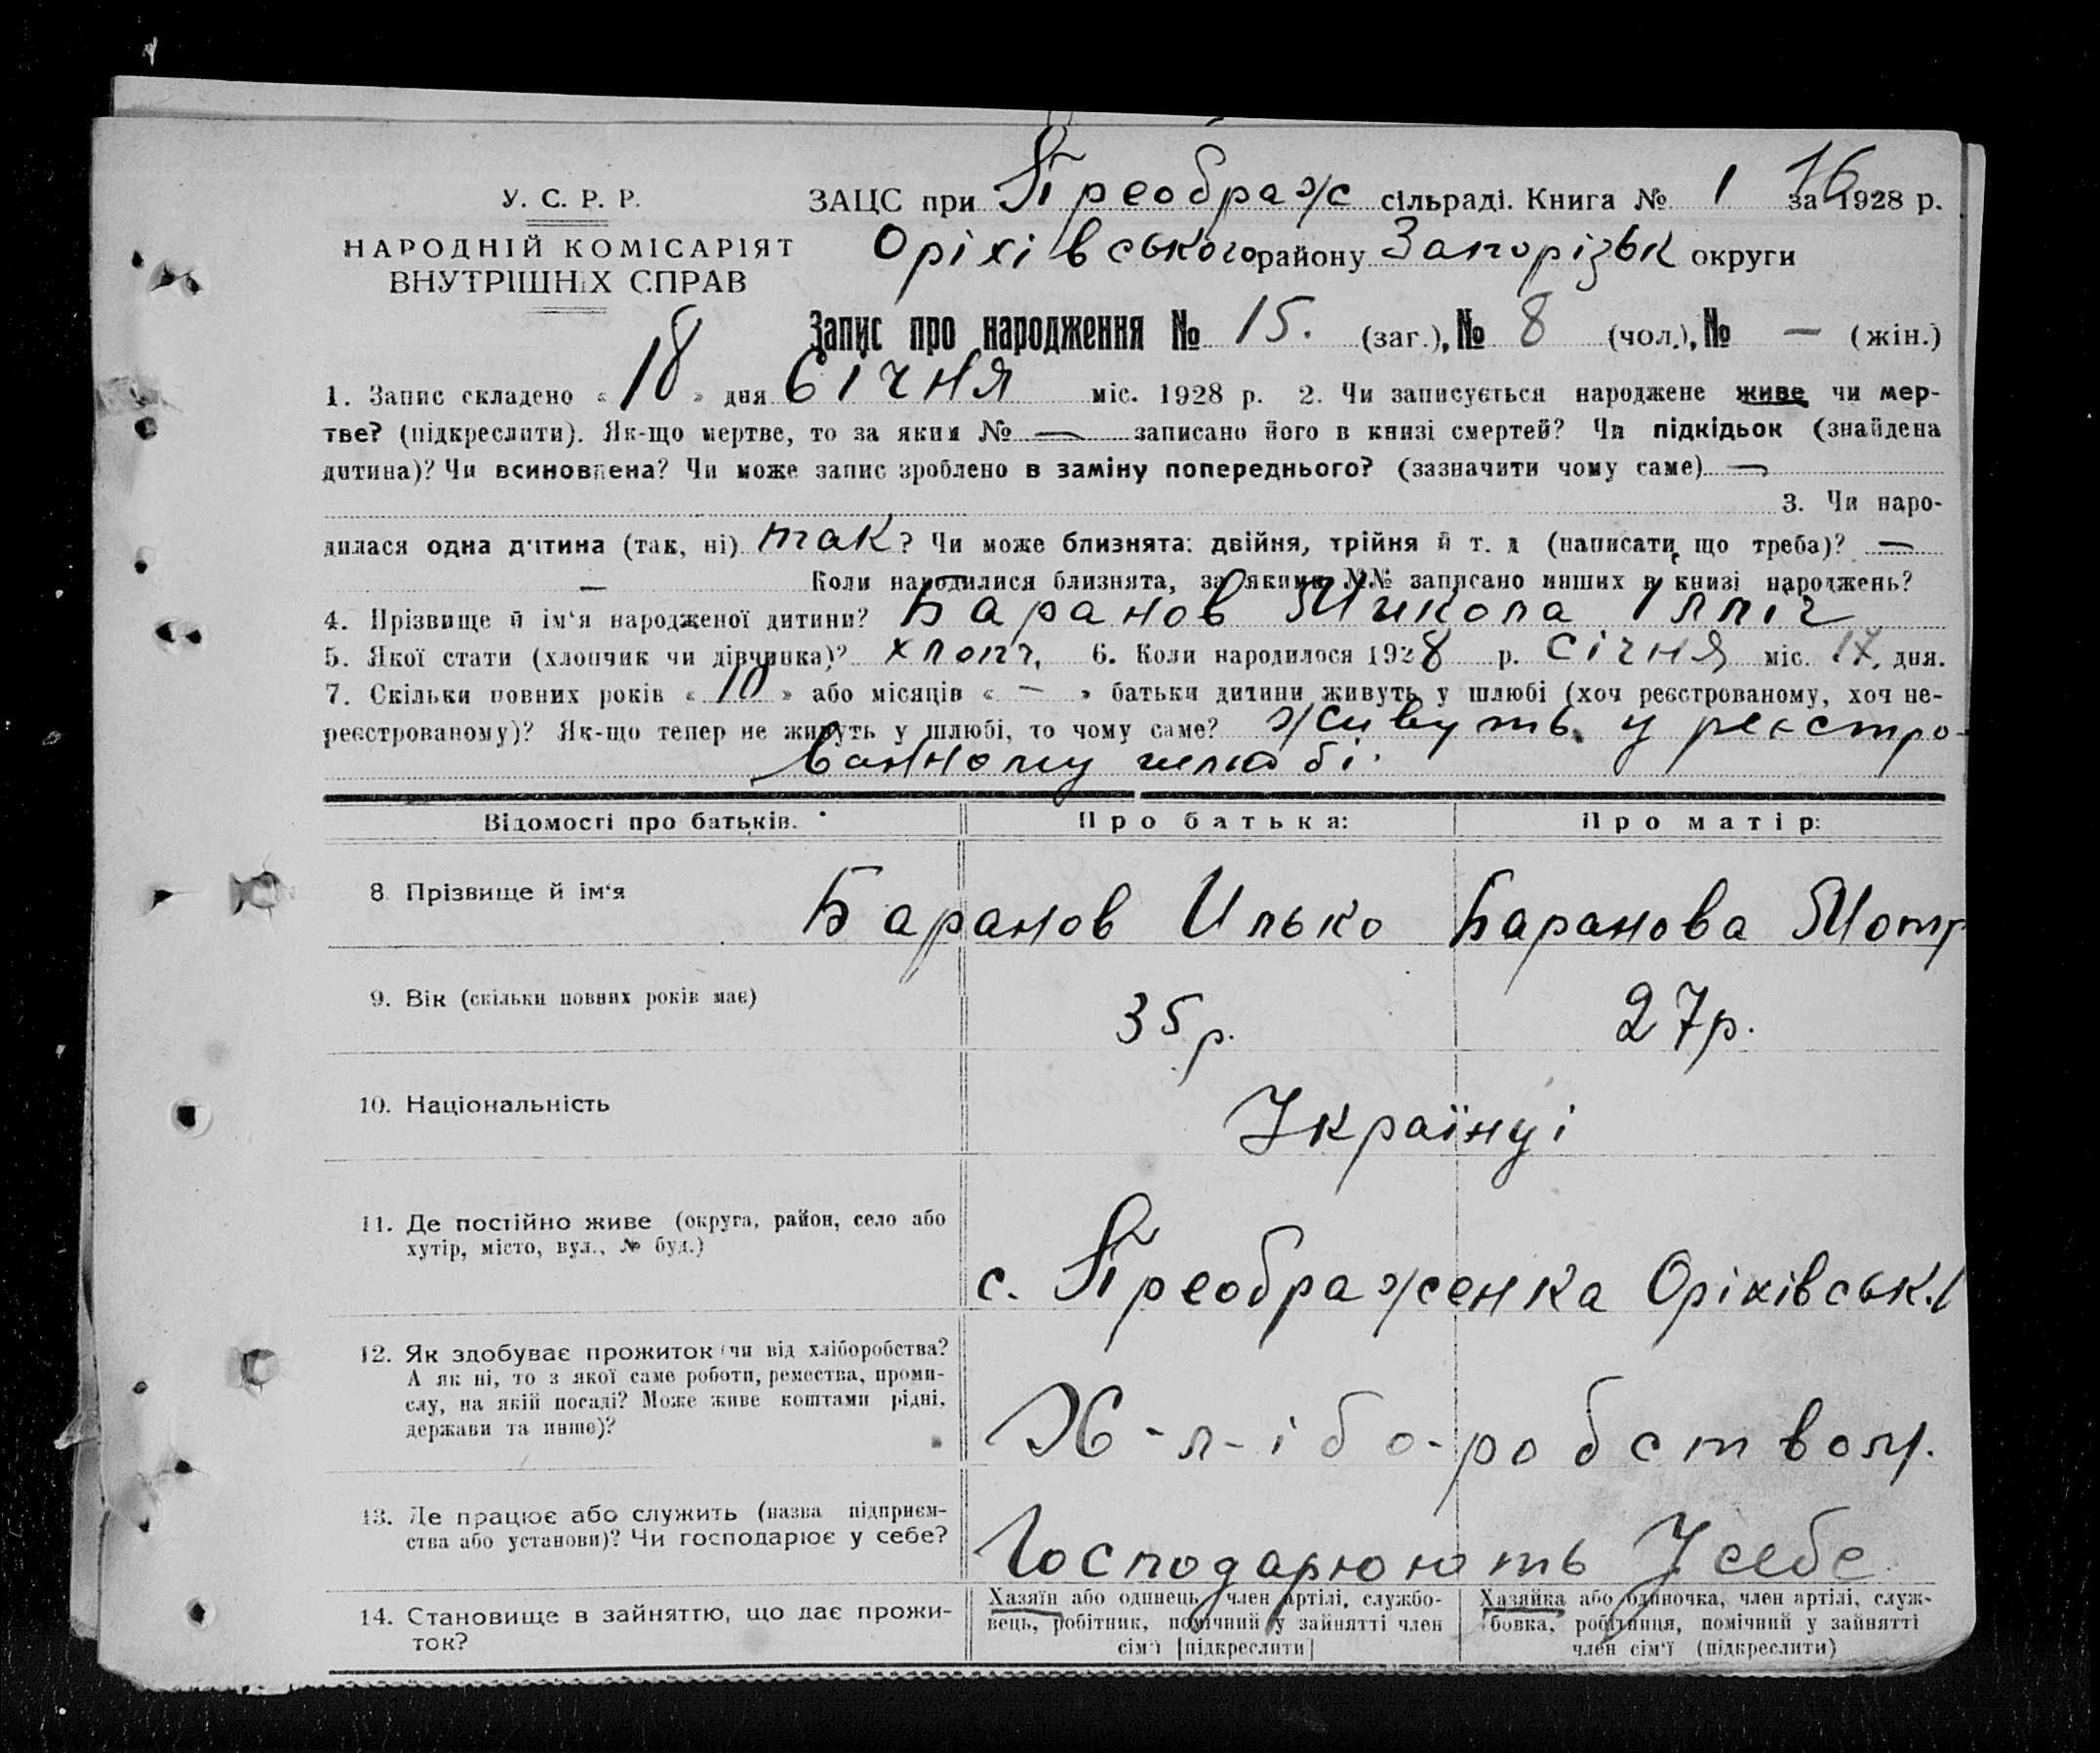 16
У. С. Р. Р. ЗАЦС при Преображ сільраді. Книга № 1 за 1928 р.
НАРОДНІЙ КОМІСАРІЯТ Оріхівського району Запорізьк округи
ВНУТРІШНІХ СПРАВ
Запис про народження № 15. (заг.), № 8 (чол.), № — (жін.)
1. Запис складено « 18 » дня Січня міс. 1928 р. 2. Чи записується народжене живе чи мер-
тве? (підкреслити). Як-що мертве, то за яким № — записано його в книзі смертей? Чи підкідьок (знайдена
дитина)? Чи всиновлена? Чи може запис зроблено в заміну попереднього? (зазначити чому саме) —
3. Чи наро-
дилася одна дитина (так, ні) так? Чи може близнята: двійня, трійня й т. д (написати, що треба)? —
— Коли народилися близнята, за якими №№ записано инших в книзі народжень?
4. Прізвище й ім‘я народженої дитини? Баранов Микола Ілліч
5. Якої стати (хлопчик чи дівчинка)? хлопч. 6. Коли народилося 1928 р. Січня міс. 17. дня.
7. Скільки повних років « 10 » або місяців « — » батьки дитини живуть у шлюбі (хоч реєстрованому, хоч не-
реєстрованому)? Як-що тепер не живуть у шлюбі, то чому саме? живуть у реєстро-
ванному шлюбі.
Відомості про батьків. Про батька: Про матір:
8. Прізвище й ім‘я Баранов Илько Баранова Мотр
9. Вік (скільки повних років має) 35 р. 27 р.
10. Національність Українці
11. Де постійно живе (округа, район, село або
хутір, місто, вул., № буд.) с. Преображенка Оріхівськ.
12. Як здобуває прожиток (чи від хліборобства?
А як ні, то з якої саме роботи, ремества, проми-
слу, на якій посаді? Може живе коштами рідні,
держави та инше)? Х-л-ібо-робством.
13. Де працює або служить (назва підприєм-
ства або установи)? Чи господарює у себе? Господарюють У себе
14. Становище в зайняттю, що дає прожи-
ток?
Хазяїн або одинець, член артілі, службо-
вець, робітник, помічний у зайнятті член
сім‘ї [підкреслити]
Хазяйка або одиночка, член артілі, служ-
бовка, робітниця, помічний у зайнятті
член сім‘ї (підкреслити)